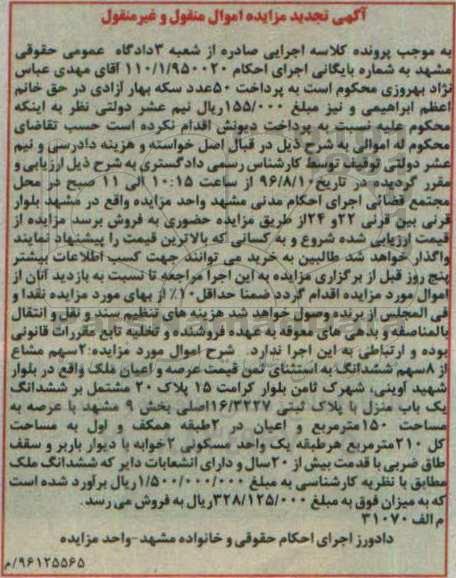 آگهی تجدید مزایده اموال منقول و غیرمنقول
به موجب پرونده کلاسه اجرایی صادره از شعبه ۳دادگاه عمومی حقوقی
مشهد به شماره بایگانی اجرای احکام ۱۱۰/۱/۹۵۰۰۲۰ آقای مهدی عباس
نژاد بهروزی محکوم است به پرداخت ۵۰عدد سکه بهار آزادی در حق خانم
اعظم ابراهیمی و نیز مبلغ ۱۵۵/۰۰۰ریال نیم عشر دولتی نظر به اینکه
محکوم علیه نسبت به پرداخت دیونش اقدام نکرده است حسب تقاضای
محکوم له اموالی به شرح ذیل در قبال اصل خواسته و هزینه دادرسی و نیم
عشر دولتی توقیف توسط کارشناس رسمی دادگستری به شرح ذیل ارزیابی و
مقرر گردیده در تاریخ ۹۶/۸/۱۰ از ساعت ۱۰:۱۵ الی ۱۱ صبح در محل
مجتمع قضائی اجرای احکام مدنی مشهد واحد مزایده واقع در مشهد بلوار
قرنی بین قرنی ۲۲و ۲۴از طریق مزایده حضوری به فروش برسد مزایده از
قیمت ارزیابی شده شروع و به کسانی که بالاترین قیمت را پیشنهاد نمایند
واگذار خواهد شد طالبین به خرید می توانند جهت کسب اطلاعات بیشتر
پنج روز قبل از برگزاری مزایده به این اجرا مراجعه تا نسبت به بازدید آنان از
اموال مورد مزایده اقدام گردد ضمنا حداقل ۱۰٪ از بهای مورد مزایده نقدا و
فی المجلس از برنده وصول خواهد شد هزینه های تنظیم سند و نقل و انتقال
بالمناصفه و بدهی های معوقه به عهده فروشنده و تخلیه تابع مقررات قانونی
بوده و ارتباطی به این اجرا ندارد. شرح اموال مورد مزایده:۲سهم مشاع
از ۸سهم ششدانگ به استثنای ثمن قیمت عرصه و اعیان ملک واقع در بلوار
شهید آوینی، شهرک ثامن بلوار کرامت ۱۵ پلاک ۲۰ مشتمل بر ششدانگ
یک باب منزل با پلاک ثبتی ۱۶/۳۲۲۷اصلی بخش ۹ مشهد با عرصه به
مساحت ۱۵۰مترمربع و اعیان در ۲طبقه همکف و اول به مساحت
کل ۲۱۰مترمربع هرطبقه یک واحد مسکونی ۲خوابه با دیوار باربر و سقف
طاق ضربی با قدمت بیش از ۲۰سال و دارای انشعابات دایر که ششدانگ ملک
مطابق با نظریه کارشناسی به مبلغ ۱/۵۰۰/۰۰۰/۰۰۰ریال برآورد شده است
که به میزان فوق به مبلغ ۳۲۸/۱۲۵/۰۰۰ریال به فروش می رسد.
م الف ۳۱۰۷۰
دادورز اجرای احکام حقوقی و خانواده مشهد-واحد مزایده
۹۶۱۲۵۵۶۵/م